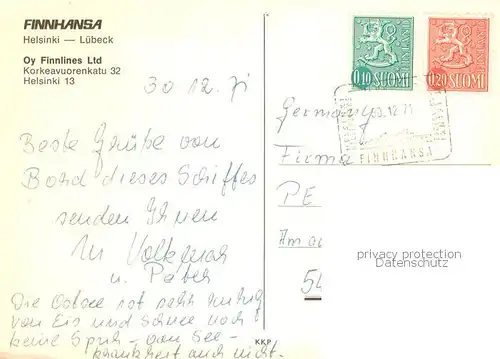 FINNHANSA
Helsinki — Lübeck
Oy Finnlines Ltd
Korkeavuorenkatu 32
Helsinki 13
0,10 SUOMI
0,20 SUOMI
30 12. 71
12.71
FINNHANSA
Germany
Firma
PE
Am
54
privacy protection
Datenschutz
Beste Grüße von
Bord dieses Schiffes
senden Ihnen
Volkmar
u. Peter
Die Ostsee ist sehr ruhig
von Eis und Schnee noch
keine Spur - von See-
krankheit auch nicht.
KKP